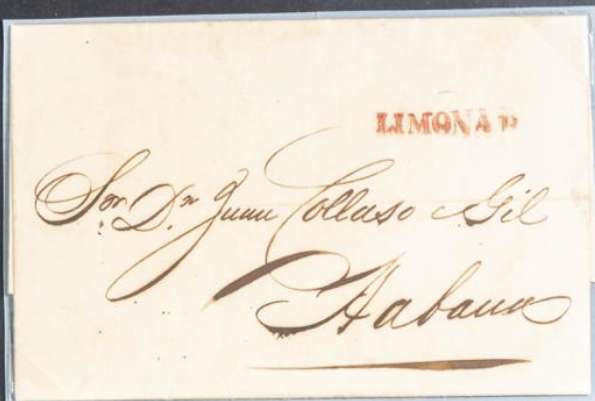 LIMONAR
Sor. Dn. Juan Collaso y Gil
Habana